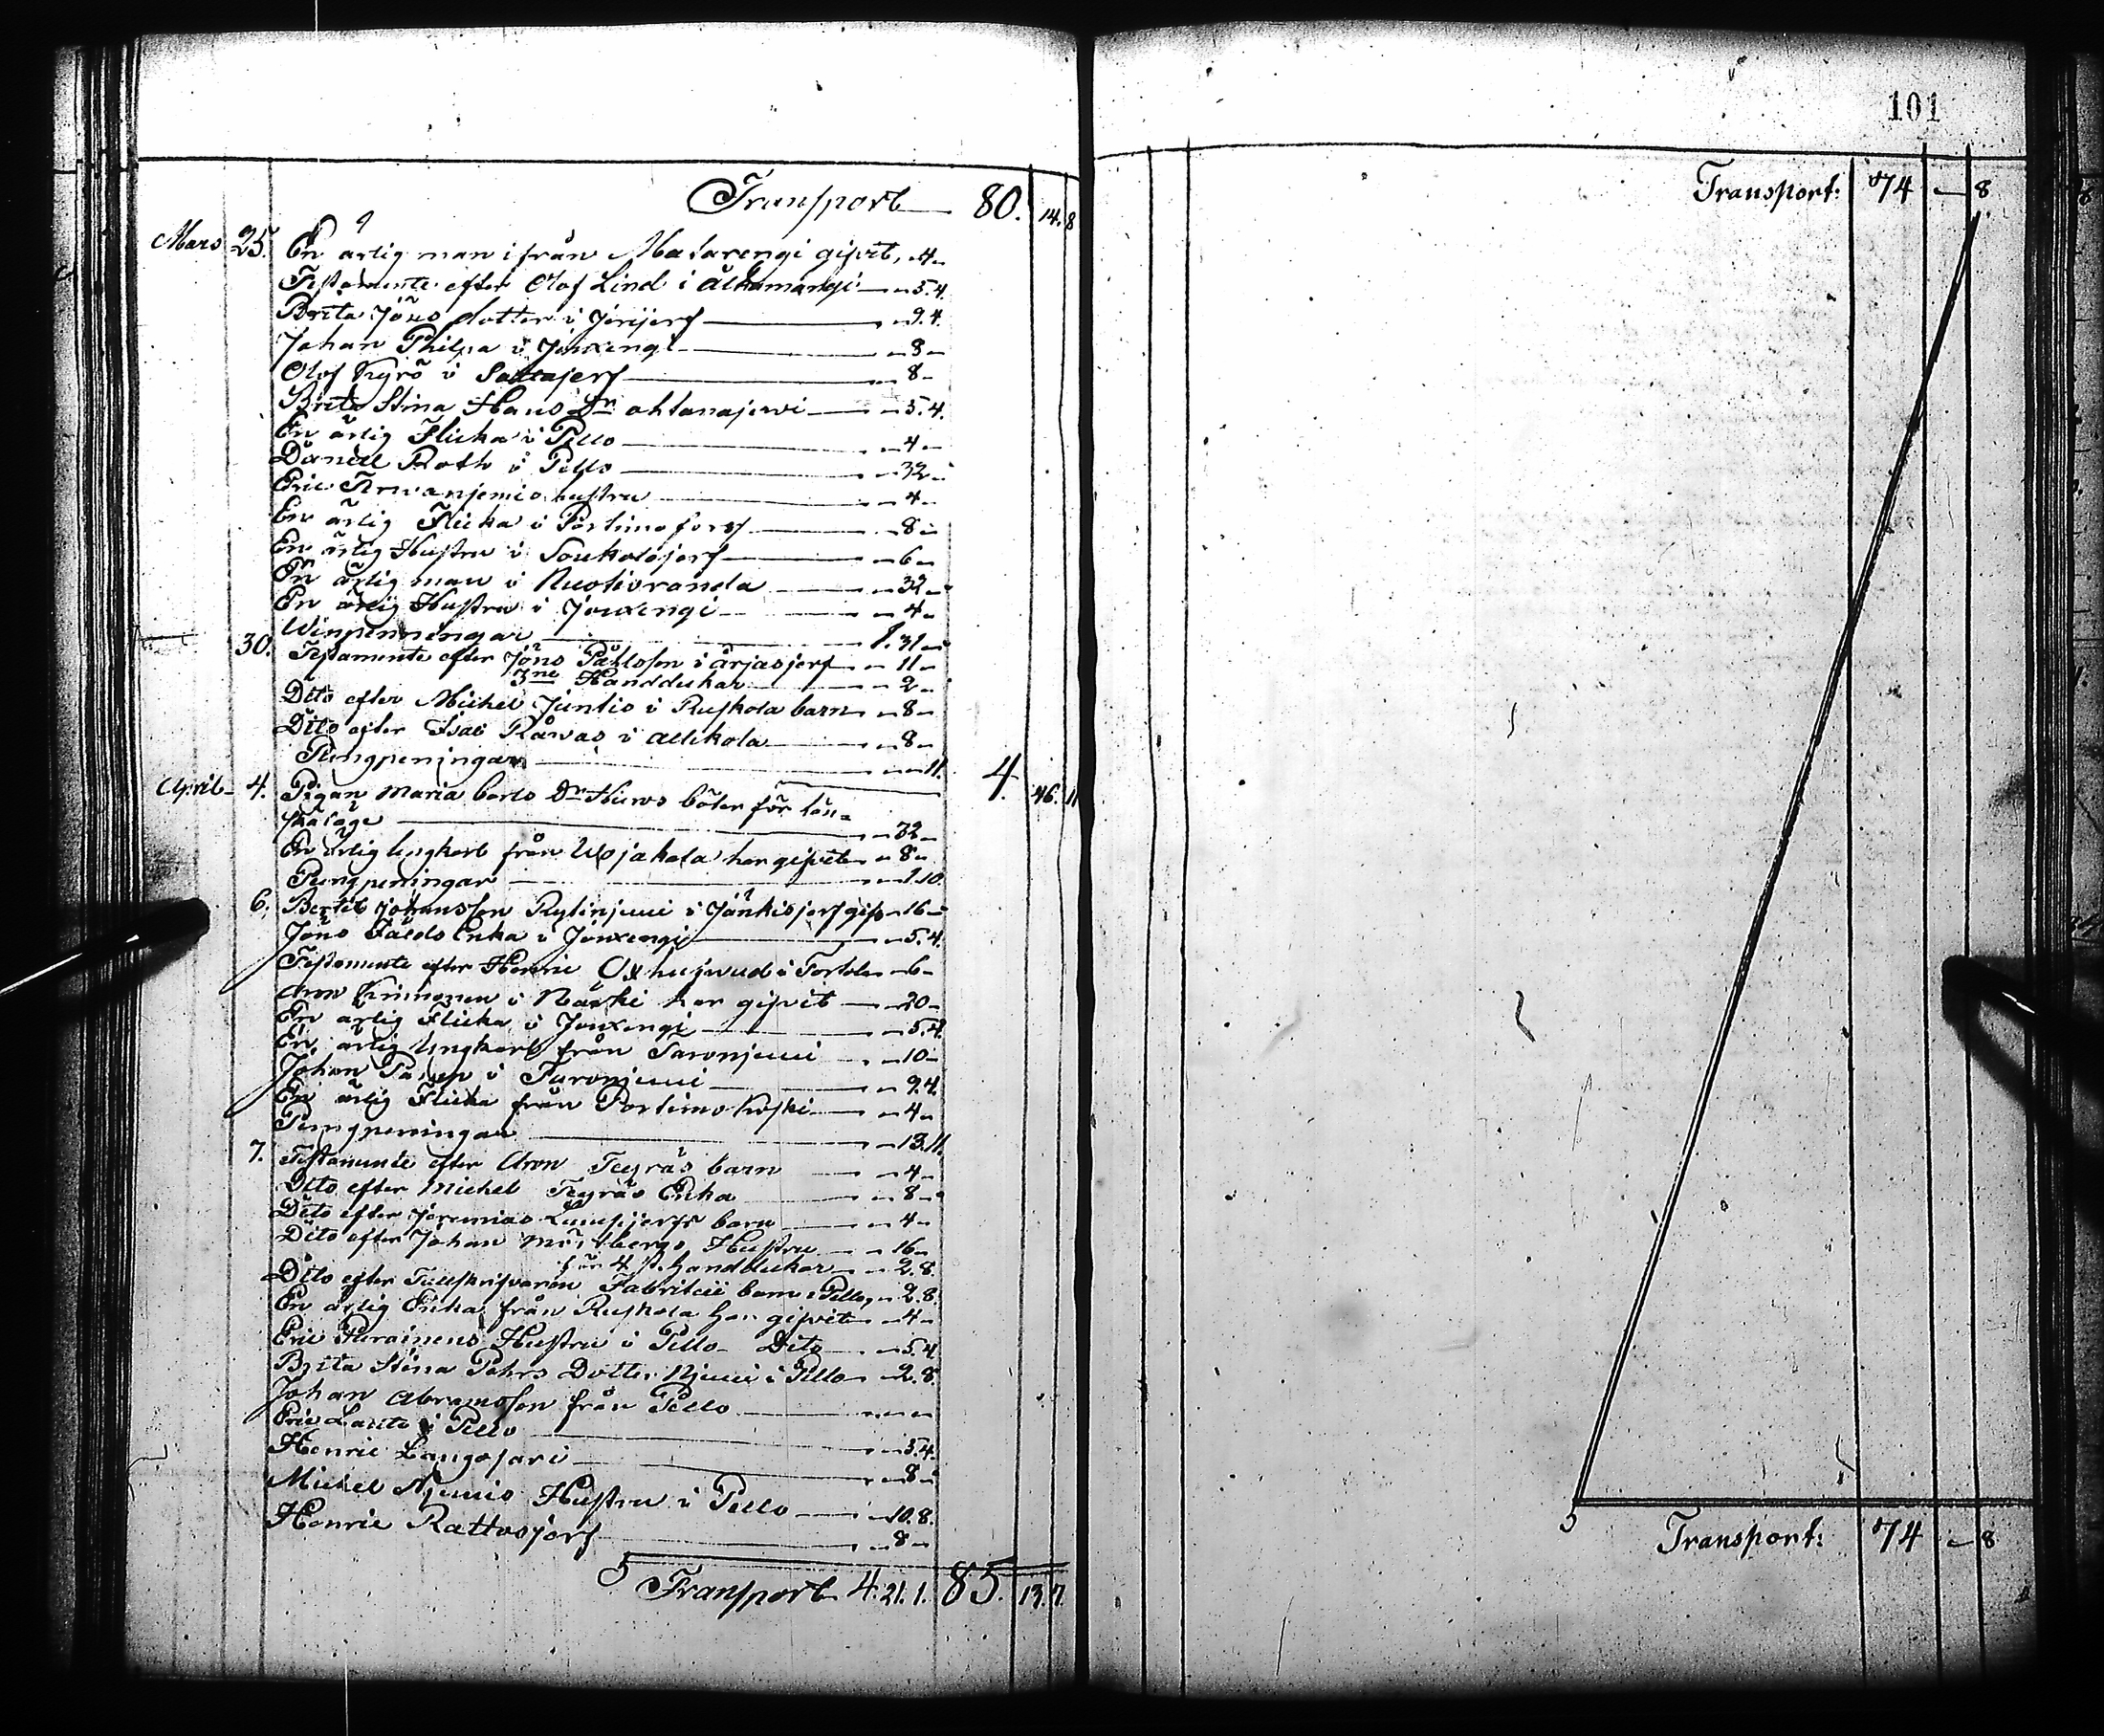 Transport 80. 14. 8
Mars 25. En ärlig man ifrån Matarengi gifvit, - 4 -
Testamente efter Olof Lind i Alkamangi - 5. 4.
Brita Jöns dotter i Jerijerf - 9. 4.
Johan Philpa i Jouxengi - 8 -
Olof Kyrö i Sattajerf - 8 -
Brita Stina Hans Dr ahtanajervi - 5. 4.
En ärlig Flicka i Pello - 4 -
Daniel Roth i Pello - 32 -
Eric hustru - 4 -
En ärlig Flicka i Portimo forss - 8 -
En ärlig Hustru i Soukolojerf - 6 -
En ärlig man i Ruokoranda - 32 -
En ärlig Hustru i Jouxengi - 4 -
Winpenningar 1. 31 -
30. Testamente efter Jöns Påhlsson i ärjasjerf - 11 -
3ne Handdukar - 2 -
Dito efter Michel Juntis i Ruskola barn - 8 -
Dito efter Isac Råwas i allkola - 8 -
Pungpeningar - - 11. 4. 46. 11
April 4. Pigan Maria Carls Dr böter för lön-
skaläge - 32 -
En ärlig Ungkarl från har gifvit - 8 -
Pungpeningar - 1. 10.
6. Bertil Johansson Rytinjemi i Jänkisjerf gifv - 16 -
Jöns Fälds Enka i Jouxengi - 5. 4.
Testamente efter Henric Oxhufwud i Tortola - 6 -
Aron i Närki har gifvit - 20 -
En ärlig Flicka i Jouxengi - 5. 4.
En ärlig Ungkarl från Turonjemi - 10 -
Johan i Turonjemi - 9. 4.
En ärlig Flicka från Portimo koski - 4 -
Pungpeningar - 13. 11.
7. Testamente efter Aron Teyräs barn - 4 -
Dito efter Michel Teyräs Enka - 8 -
Dito efter Jeremias Lampijerfs barn - 4 -
Dito efter Johan Hustru - 16 -
för 4 st. handdukar - 2. 8.
Dito efter Tullskrifvaren Fabritii barn i Pello, - 2. 8.
En ärlig Enka från Ruskola har gifvit - 4 -
Eric Purainens Hustru i Pello - Dito - 5. 4
Brita Stina Pehrs Dotter Njemi i Pello - 2. 8.
Johan Abramsson från Pello - - -
Eric Lauto i Pello - 5. 4.
Henric Langosari - 8 -
Michel Njemis Hustru i Pello - 10. 8.
Henric Rattosjerf - 8 -
Transport 4. 21. 1. 85. 13. 7.
101
Transport: 74 - 8
Transport: 74 - 8